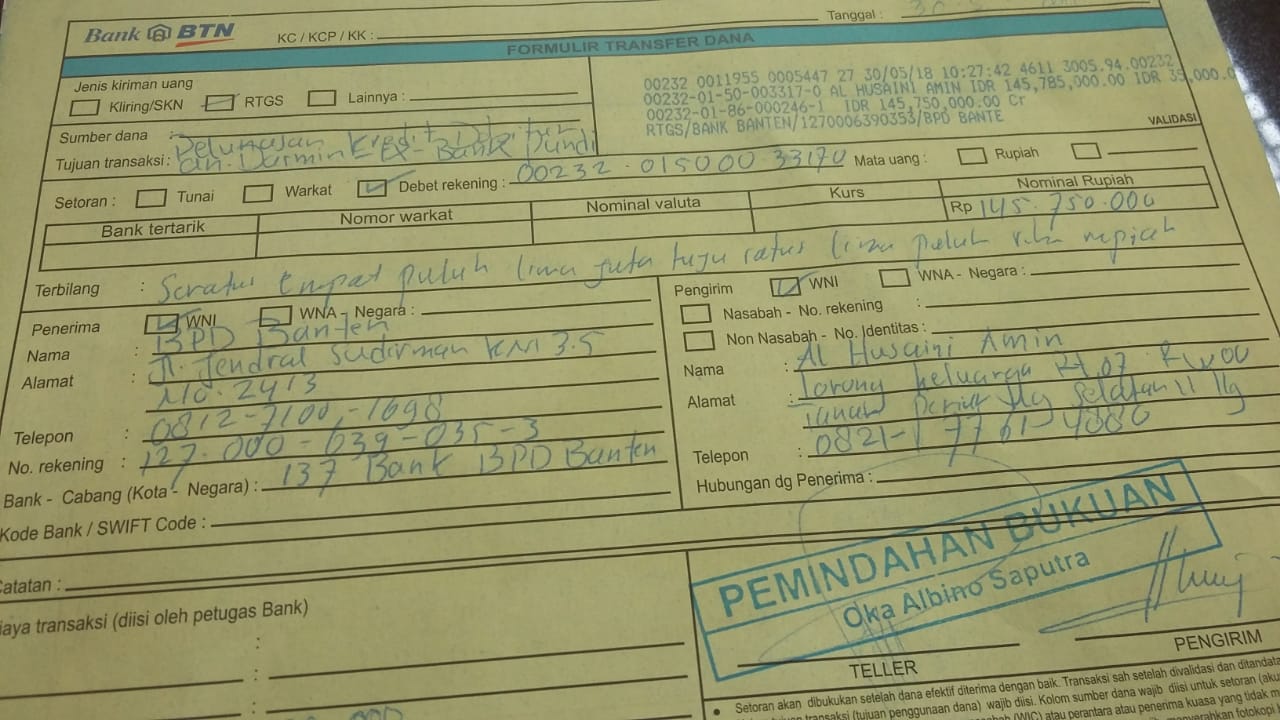 Bank BTN
KC / KCP / KK :
Tanggal : 30
FORMULIR TRANSFER DANA
Jenis kiriman uang
Kliring/SKN RTGS Lainnya :
00232 0011955 0005447 27 30/05/18 10:27:42 4611 3005.94.00232
00232-01-50-003317-0 AL HUSAINI AMIN IDR 145,785,000.00 IDR 35,000.0
00232-01-86-000246-1 IDR 145,750,000.00 Cr
RTGS/BANK BANTEN/1270006390353/BPD BANTE
VALIDASI
Sumber dana : Pelunasan Kredit Debitur
Tujuan transaksi : an. Darmin - EX - Bank Pundi
Setoran : Tunai Warkat Debet rekening : 00232.015000 33170 Mata uang : Rupiah
Bank tertarik Nomor warkat Nominal valuta Kurs Nominal Rupiah
Rp 145.750.000
Terbilang : Seratus Empat puluh lima juta tuju ratus lima puluh ribu rupiah
Penerima WNI WNA - Negara :
Nama : BPD Banten
Alamat : Jl. Jendral Sudirman KM 3.5
No. 2413
Telepon : 0812-7100-1698
No. rekening : 127.000-639-035-3
Bank - Cabang (Kota - Negara) : 137 Bank BPD Banten
Kode Bank / SWIFT Code :
Pengirim WNI WNA - Negara :
Nasabah - No. rekening :
Non Nasabah - No. Identitas :
Nama : Al Husaini Amin
Alamat : Lorong keluarga Rt.07 Rw.00
Selatan
Telepon : 0821-7761-4080
Hubungan dg Penerima :
Catatan :
iaya transaksi (diisi oleh petugas Bank)
PEMINDAHAN BUKUAN
Oka Albino Saputra
TELLER
PENGIRIM
• Setoran akan dibukukan setelah dana efektif diterima dengan baik. Transaksi sah setelah divalidasi dan ditandata
transaksi (tujuan penggunaan dana) wajib diisi. Kolom sumber dana wajib diisi untuk setoran (aku
(WIC) atau perantara atau penerima kuasa yang tidak m
fotokopi